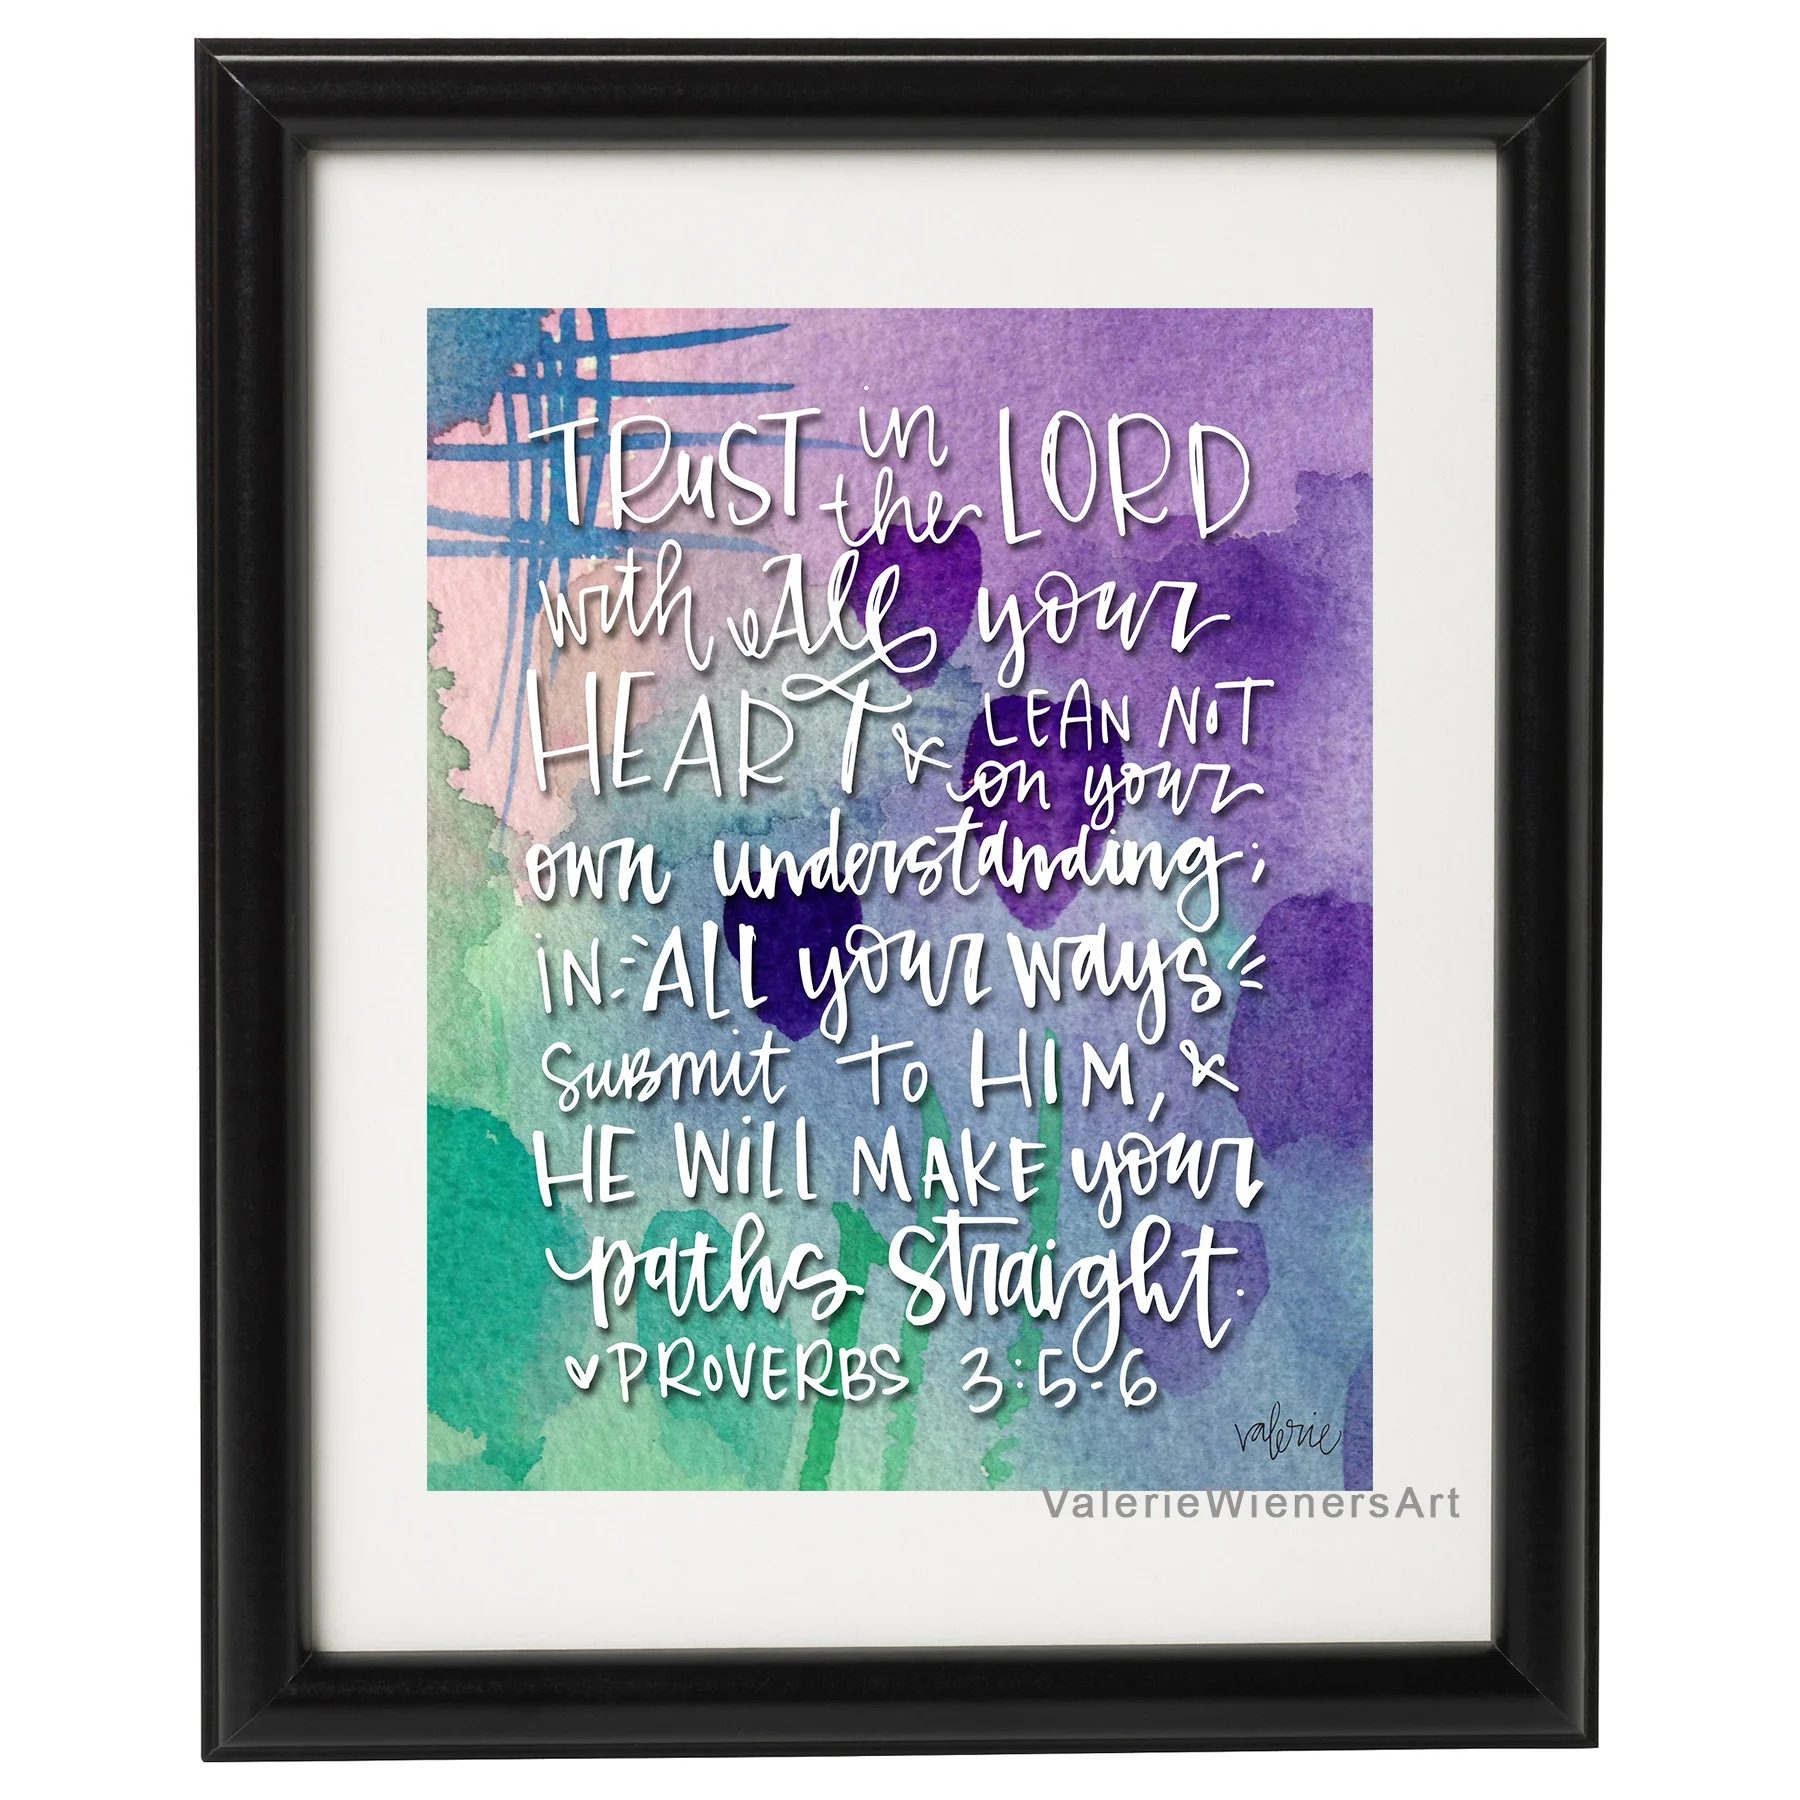 TRUST in the LORD
with All your
HEART & LEAN NOT
on your
own understanding;
IN ALL your ways
SUBMIT TO HIM, &
HE WILL MAKE your
paths straight.
PROVERBS 3:5-6
valerie
ValerieWienersArt